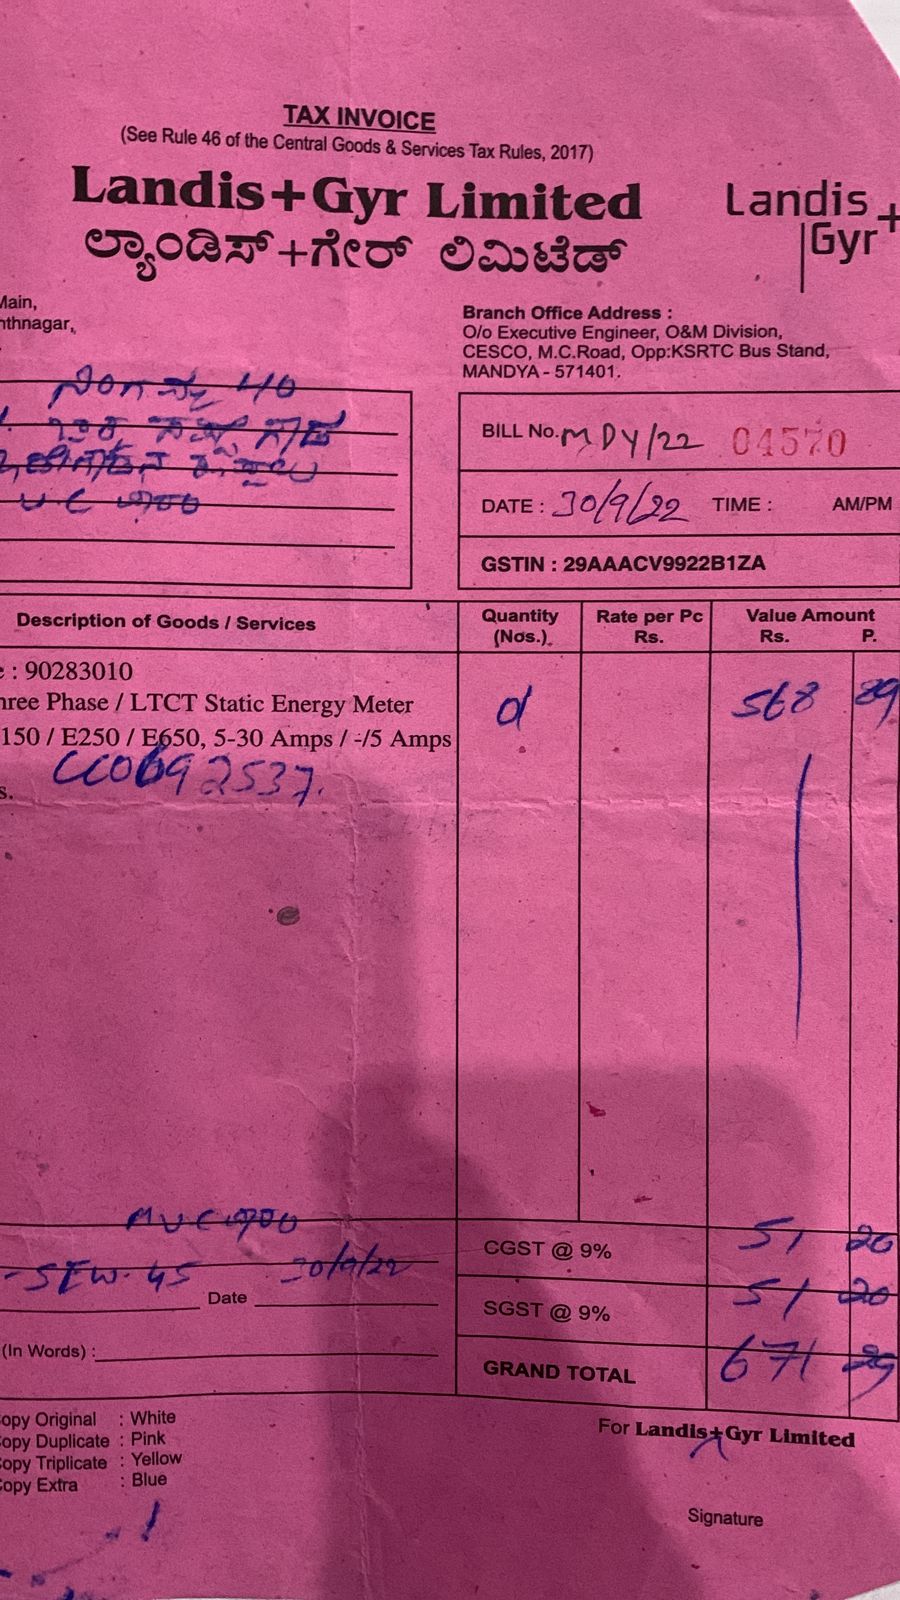 TAX INVOICE
(See Rule 46 of the Central Goods & Services Tax Rules, 2017)
Landis+Gyr Limited
ಲ್ಯಾಂಡಿಸ್+ಗೇರ್ ಲಿಮಿಟೆಡ್
Landis+
Gyr
Main,
nthnagar,
Branch Office Address :
O/o Executive Engineer, O&M Division,
CESCO, M.C.Road, Opp:KSRTC Bus Stand,
MANDYA - 571401.
BILL No. MDY/22 04570
DATE : 30/9/22 TIME : AM/PM
GSTIN : 29AAACV9922B1ZA
Description of Goods / Services Quantity (Nos.) Rate per Pc Rs. Value Amount Rs. P.
e : 90283010
hree Phase / LTCT Static Energy Meter 568 89
150 / E250 / E650, 5-30 Amps / -/5 Amps
s. CC0692537.
CGST @ 9% 51 20
-SEW. 45 30/9/22
Date
SGST @ 9% 51 20
(In Words) :
GRAND TOTAL 671 29
opy Original : White
opy Duplicate : Pink
opy Triplicate : Yellow
opy Extra : Blue
For Landis+Gyr Limited
Signature